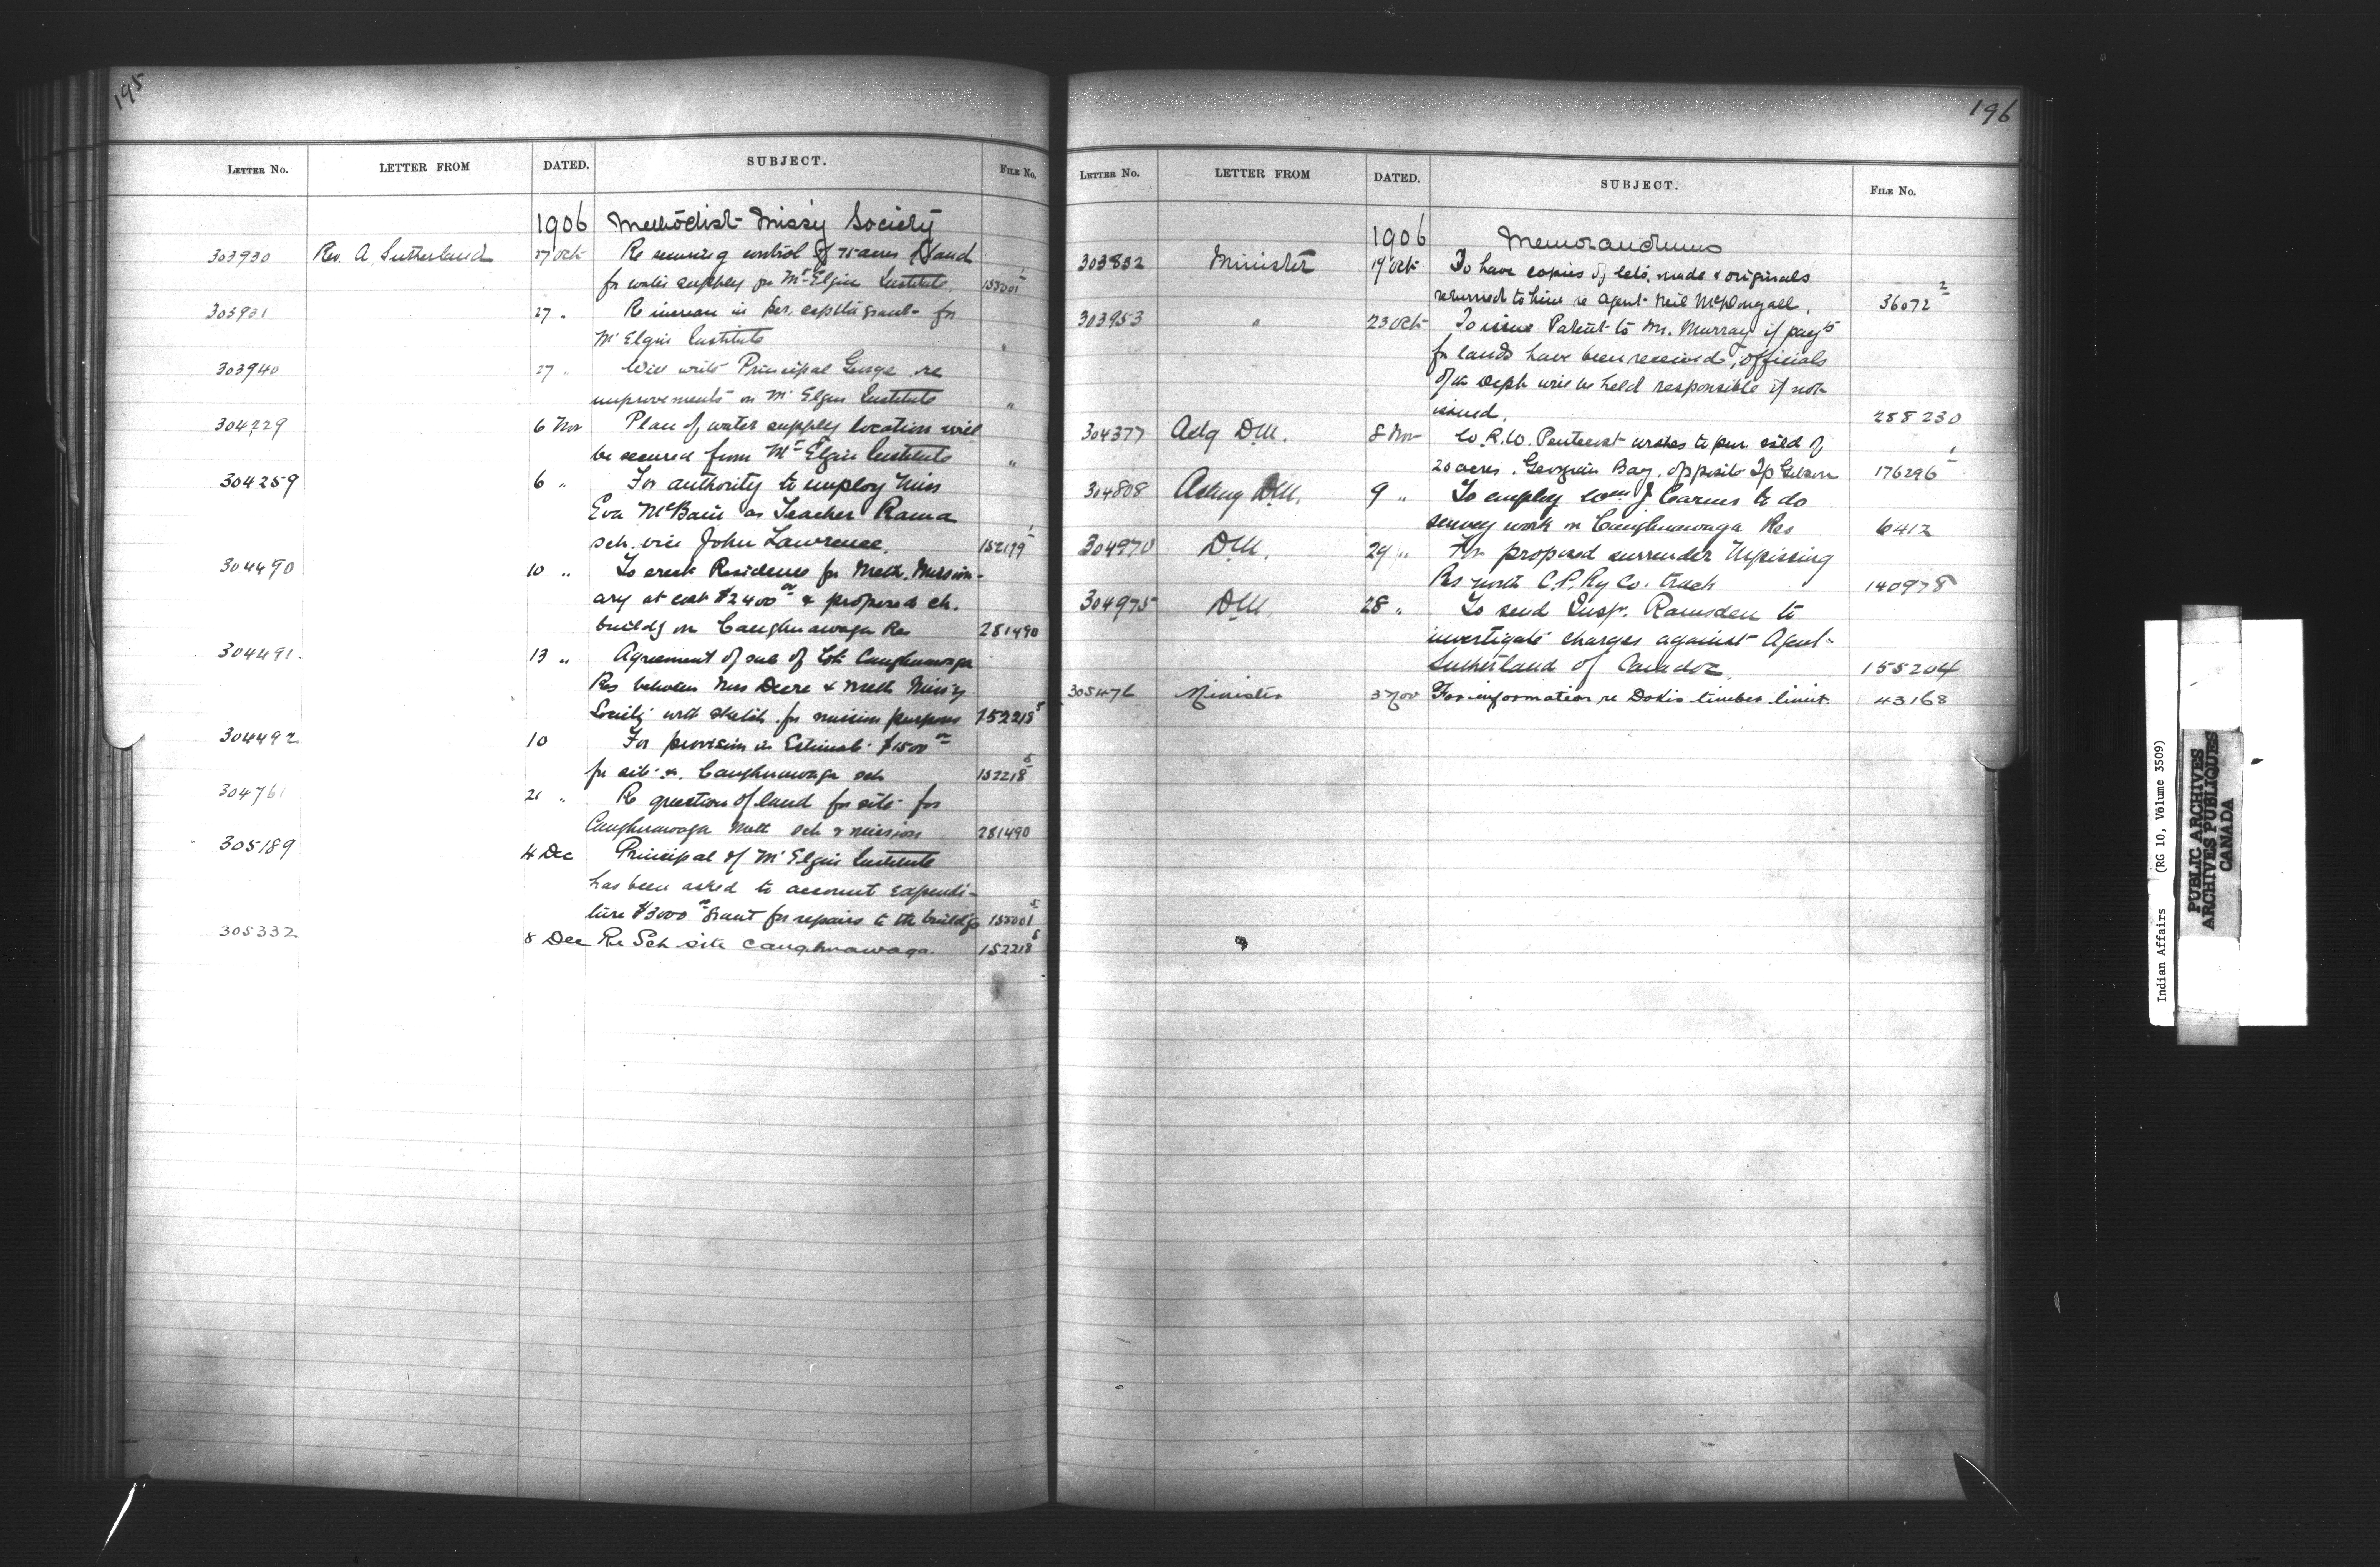 195
LETTER No. LETTER FROM DATED. SUBJECT. FILE No.
1906 Methodist Missy Society
303930 Rev. A. Sutherland 27 Oct Re securing control of 75 acres of land
for water supply for Mt Elgin Institute 155001
303931 27 " Re increase in per. capita grant for
Mt Elgin Institute "
303940 27 " Will write Principal George re
improvements on Mt Elgin Institute "
304229 6 Nov Plan of water supply location will
be secured from Mt Elgin Institute "
304259 6 " For authority to employ Miss
Eva McBain as Teacher Rama
sch. vice John Lawrence. 152179 1
304490 10 " To erect Residence for Meth. Mission-
ary at cost $2400 00 & proposed ch.
buildg on Caughnawaga Res 281490
304491. 13 " Agreement of sale of Lot Caughnawaga
Res between Mrs Deere & Meth Missy
Society with sketch for mission purposes 152218 5
304492 10 For provision in Estimate $1500 00
for site Caughnawaga sch 152218 5
304761 21 " Re question of land for site for
Caughnawaga Meth sch & mission 281490
305189 4 Dec Principal of Mt Elgin Institute
has been asked to account expendi-
ture $3000 00 grant for repairs to the buildgs 155001 5
305332 8 Dec Re Sch site Caughnawaga. 152218 5
196
LETTER No. LETTER FROM DATED. SUBJECT. FILE No.
1906 Memorandums
303832 Minister 19 Oct To have copies of lets. made & originals
returned to him re Agent Neil McDougall. 36072 2
303953 " 23 Oct To issue Patent to Mr. Murray if payts
for lands have been received, officials
of the Dept will be held responsible if not
issued. 288230
304377 Actg D.M. 8 Nov W. R. W. Pentecost wishes to pur. isld of
20 acres, Georgian Bay, opposite Tp Gibson 176296 1
304808 Acting D.M. 9 " To employ Wm J. Carrus to do
survey work on Caughnawaga Res 6412
304970 D.M. 29 " For proposed surrender Nipissing
Res north C.P. Ry Co. track 140978
304975 D.M. 28 " To send Insp. Ramsden to
investigate charges against Agent
Sutherland of Caradoc 155204
305476 Minister 3 Nov For information re Dokis timber limit. 43168
Indian Affairs (RG 10, Volume 3509)
PUBLIC ARCHIVES
ARCHIVES PUBLIQUES
CANADA